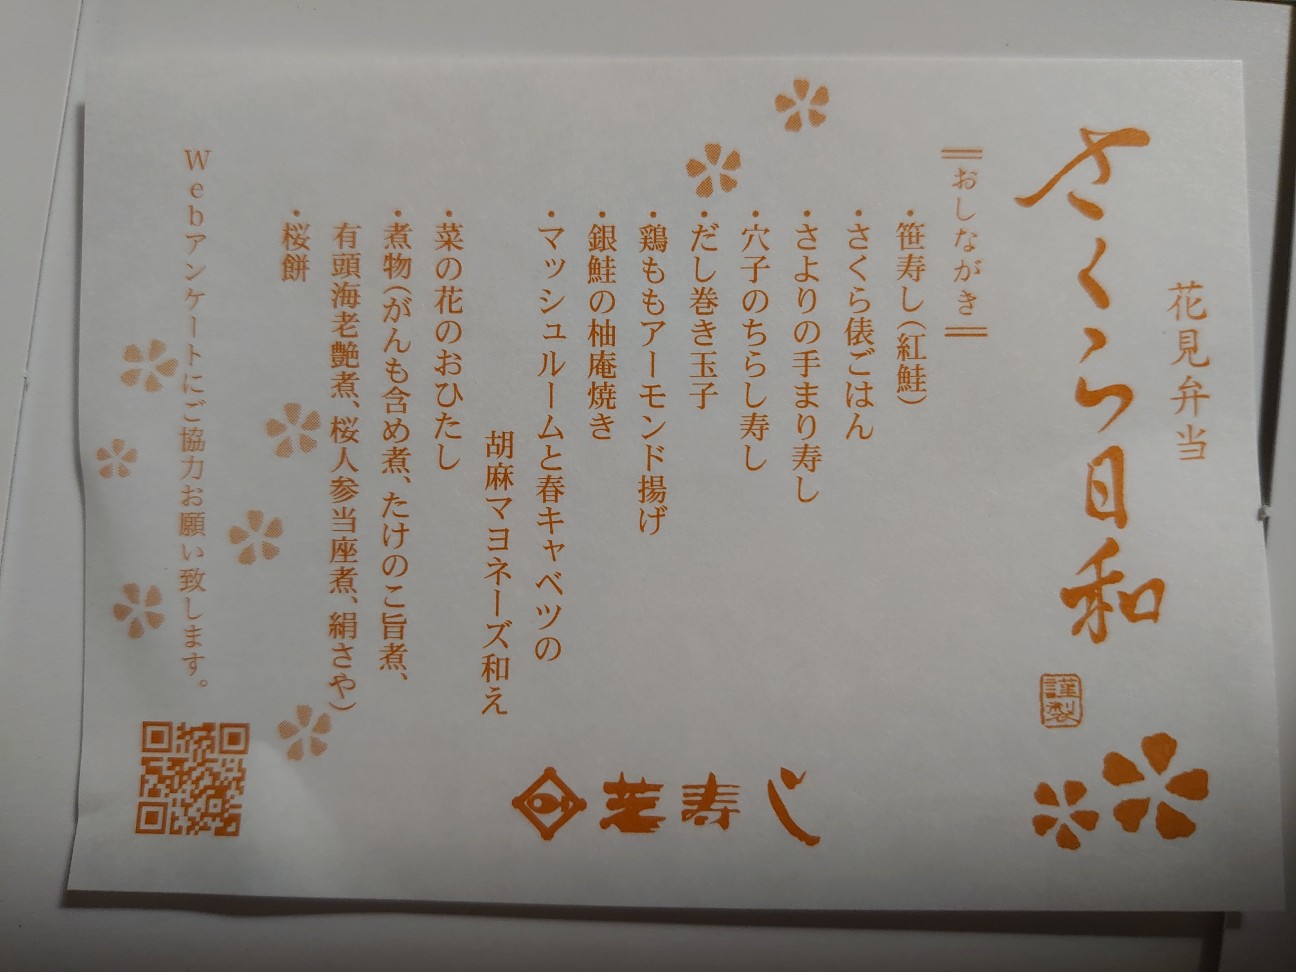 花見弁当
さくら日和
謹製
おしながき
・笹寿し（紅鮭）
・さくら俵ごはん
・さよりの手まり寿し
・穴子のちらし寿し
・だし巻き玉子
・鶏ももアーモンド揚げ
・銀鮭の柚庵焼き
・マッシュルームと春キャベツの
胡麻マヨネーズ和え
・菜の花のおひたし
・煮物（がんも含め煮、たけのこ旨煮、
有頭海老艶煮、桜人参当座煮、絹さや）
・桜餅
Webアンケートにご協力お願い致します。
芝寿し